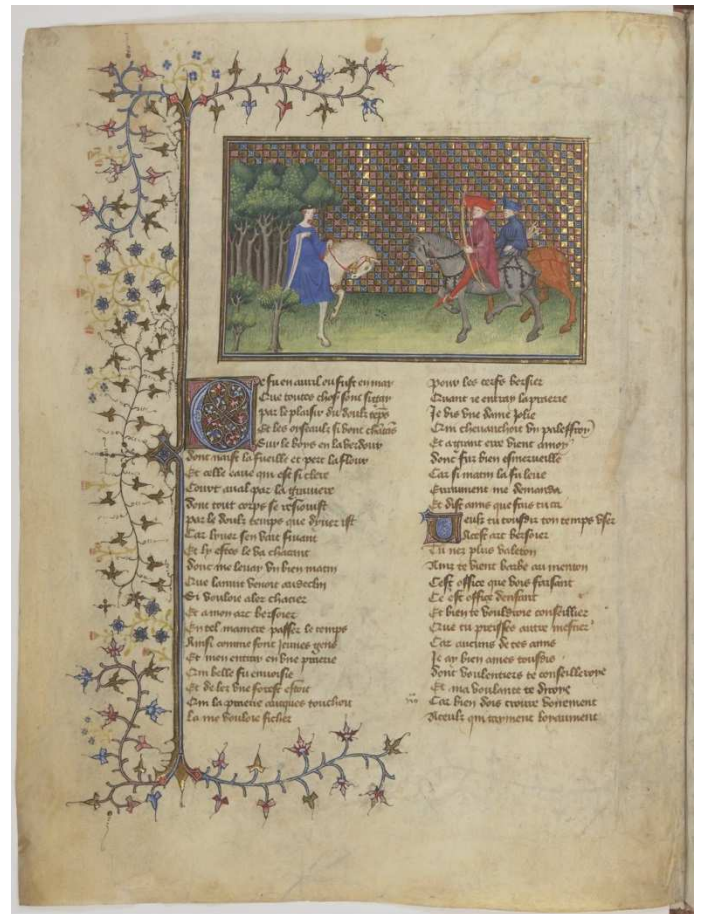 Ce fu en auril ou fust en may
Que toutes choses sont si gay
Par le plaisir du doulz temps
Et les oyseaulx si vont chantans
Sur le boys en la verdour
dont naist la fueille et pert la flour
Et celle eaue qui est si clere
Court aual par la grauiere
dont tout corps se resioist
par le doulz temps que dyuer ist
Car lyuer sen vait fuiant
Et ly estes le va chacant
donc me leuay vn bien matin
Que la nuit venoit au declin
Si vouloie aler chacier
Et a mon arc berser
En tel maniere passer le temps
Ainsi comme font jeunes gens
Et men entray en vne praerie
Qui belle fu enuoisie
Et de les vne forest estoit
Qui la praerie auques touchoit
La me vouloie ficher
pour les cerfs berser
Quant ie entray la praerie
Je vis vne dame jolie
Qui cheuauchoit vn paleffroy
Et a grant erre vient a moy
donc fux bien esmerueille
Car si matin la fu leuee
Erraument me demanda
Et dist amis que fais tu ca
Veulx tu tousdiz ton temps vser
A cest arc berser
Tu nez plus valeton
Ainz te vient barbe au menton
Cest office que vois faisant
Ce est office denfant
Et bien te vouldroie conseillier
Que tu preisses autre mestier
Car aucuns de tes amis
Je ay bien ames tousdis
dont voulentiers te conseilleroye
Et ma voulante te diroye
Car bien dois croire bonnement
A ceulx qui tayment loyaument